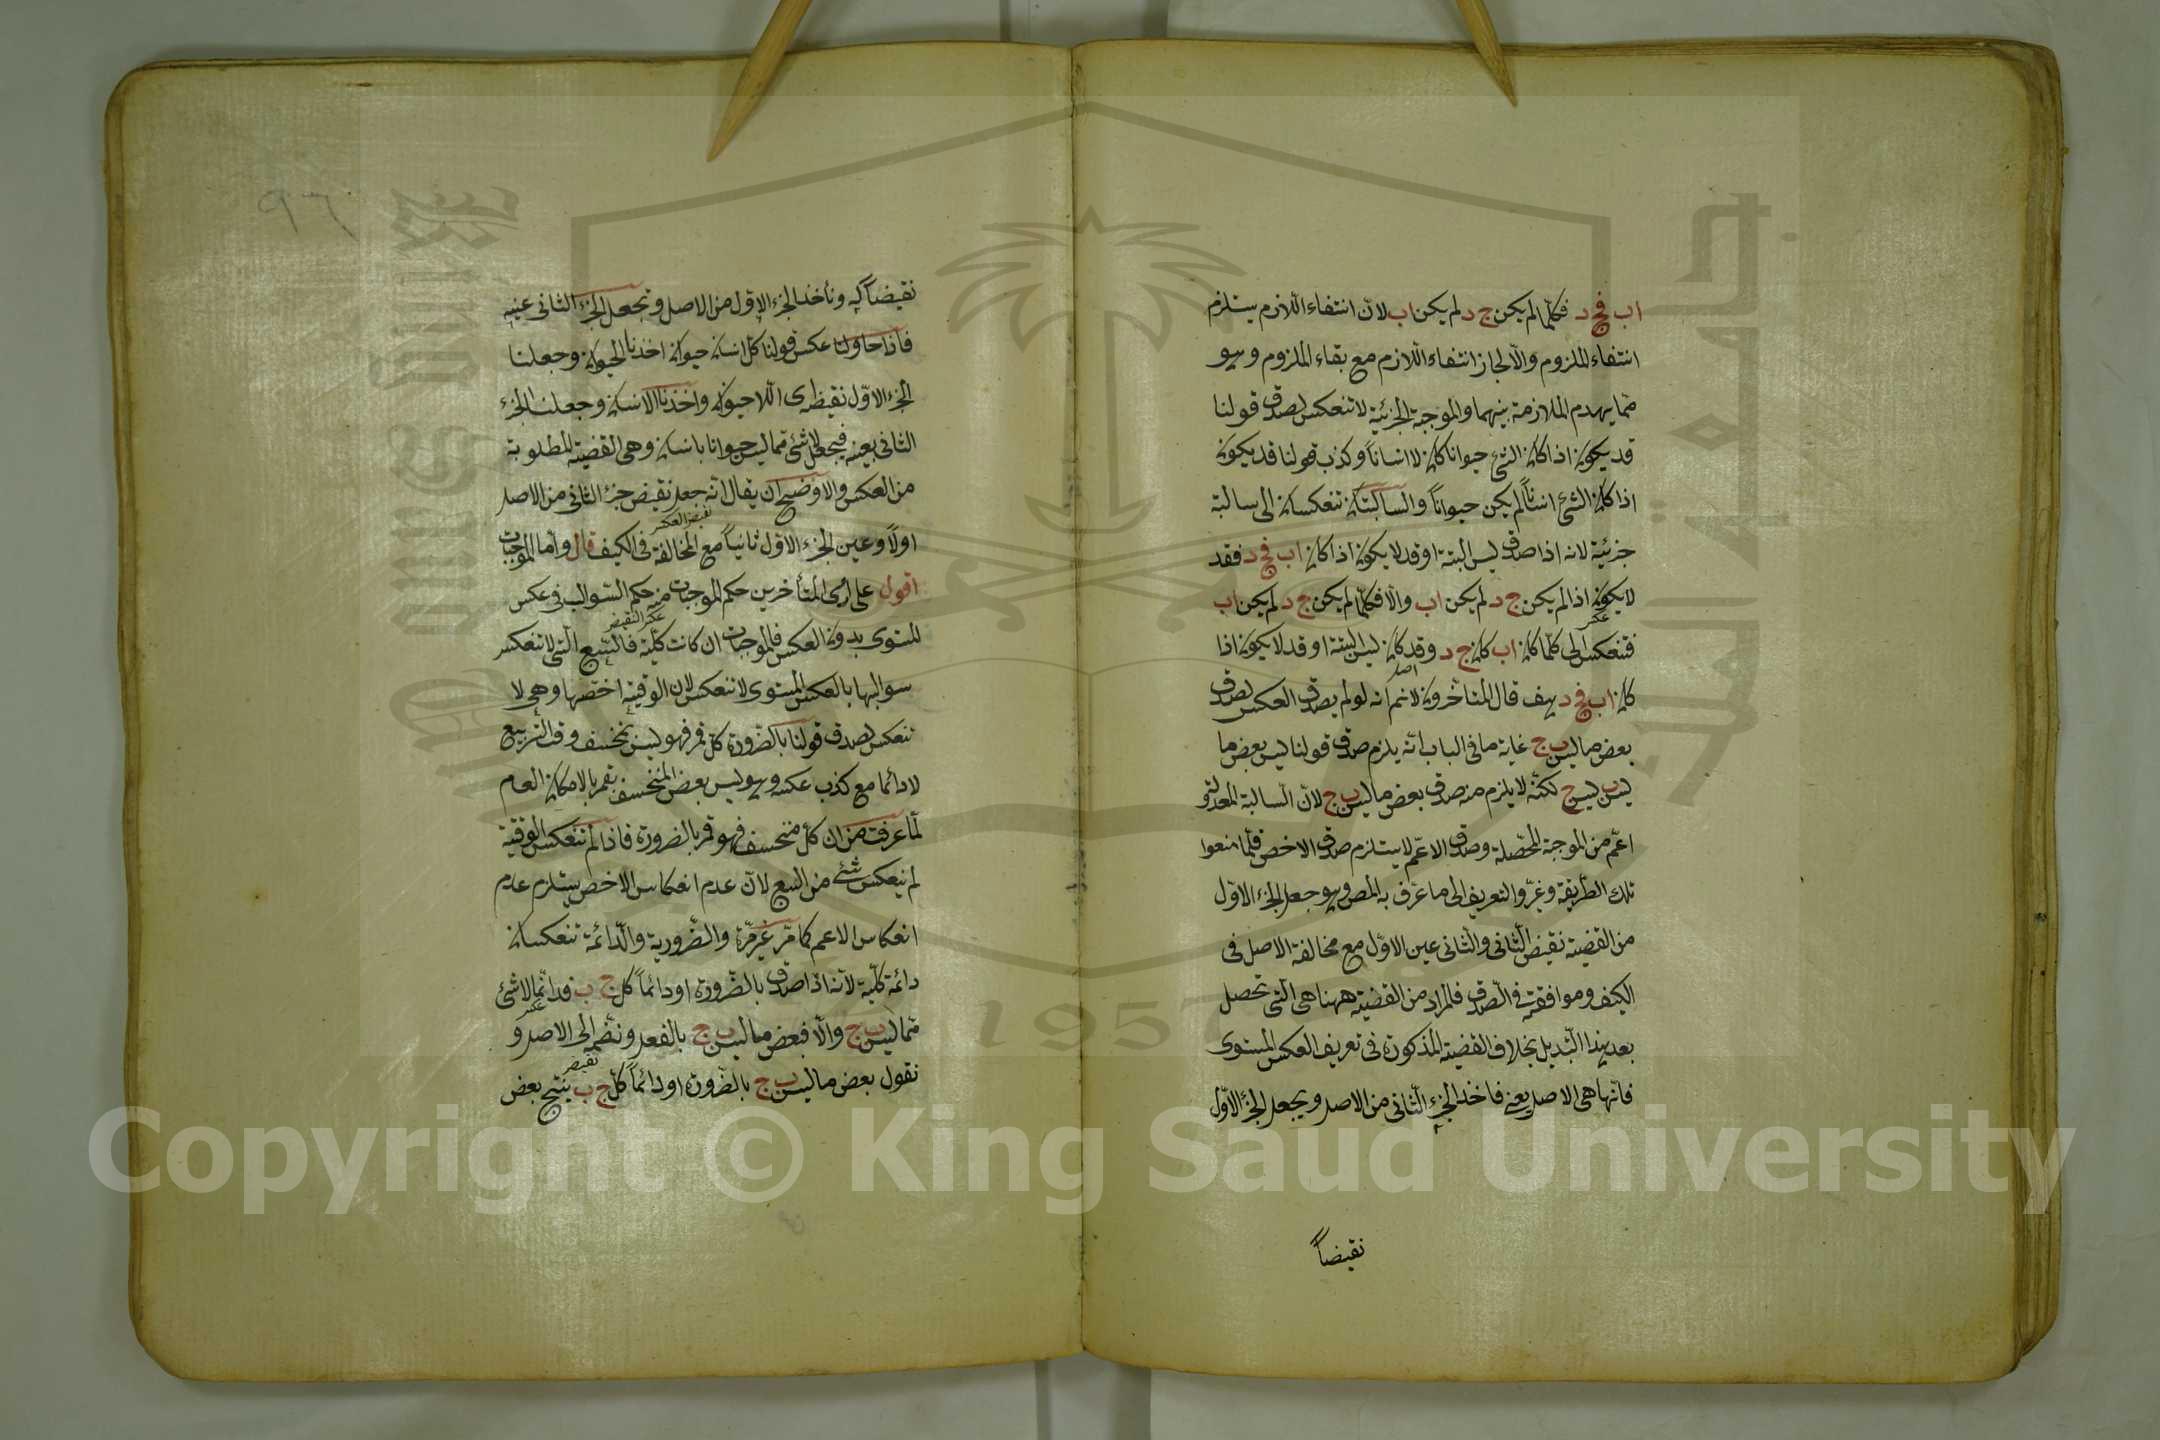 اب فج د فكلما لم يكن ج د لم يكن اب لان انتفاء اللازم يستلزم
انتفاء الملزوم والا لجاز انتفاء اللازم مع بقاء الملزوم وهو
مما يهدم الملازمة بينهما والموجبة الجزئية لا تنعكس لصدق قولنا
قد يكون اذا كان الشئ حيوانا كان لا انساناً وكذب قولنا قد يكون
اذا كان الشئ انساناً لم يكن حيواناً والسالبتان تنعكسان الى سالبة
جزئية لانه اذا صدق ليس البتة او قد لا يكون اذا كان اب فج د فقد
لا يكون اذا لم يكن ج د لم يكن اب والا فكلما لم يكن ج د لم يكن اب
عكس
فتنعكس الى كلما كان اب كان ج د وقد كان ليس البتة او قد لا يكون اذا
اصل
كان اب فج د هف قال المتأخرون لانم انه لو لم يصدق العكس لصدق
بعض ما ليس ب ج غاية ما في الباب انه يلزم صدق قولنا ليس بعض ما
ليس ب ليس ج لكنه لا يلزم منه صدق بعض ما ليس ب ج لان السالبة المعدولة
اعم من الموجبة المحصلة وصدق الاعم لا يستلزم صدق الاخص فلما منعوا
تلك الطريقة وغيروا التعريف الى ما عرف به المص وهو جعل الجزء الاول
من القضية نقيض الثاني والثاني عين الاول مع مخالفة الاصل في
الكيف وموافقته في الصدق فالمراد من القضية ههنا هي التي تحصل
بعد هذا التبديل بخلاف القضية المذكورة في تعريف العكس المستوى
فانها هي الاصل يعني فاخذ الجزء الثاني من الاصل ويجعل الجزء الاول
نقيضاً
٩٦
نقيضاً له ونأخذ الجزء الاول من الاصل ونجعل الجزء الثاني عينه
فاذا حاولنا عكس قولنا كل انسان حيوان اخذنا الحيوان وجعلنا
الجزء الاول نقيضه اى اللاحيوان واخذنا الانسان وجعلنا الجزء
الثاني بعينه فيجعل لا شئ مما ليس حيوانا بانسان وهي القضية المطلوبة
من العكس والاوضح ان يقال انه جعل نقيض جزء الثاني من الاصل
نقيض العكس
اولاً وعين الجزء الاول ثانياً مع المخالفة في الكيف قال واما الموجبات
اقول على رأى المتأخرين حكم الموجبات منه حكم السوالب في عكس
عكس النقيض
المستوى بدون العكس فالموجبات ان كانت كلية فالسبع التي لا تنعكس
سوالبها بالعكس المستوى لا تنعكس لان الوقتية اخصها وهي لا
تنعكس لصدق قولنا بالضرورة كل قمر فهو ليس بمنخسف وقت التربيع
لا دائما مع كذب عكسه وهو ليس بعض المنخسف بقمر بالامكان العام
لما عرفت من ان كل منخسف فهو قمر بالضرورة فاذا لم تنعكس الوقتية
لم ينعكس شئ من السبع لان عدم انعكاس الاخص يستلزم عدم
انعكاس الاعم كما مر غير مرة والضرورية والدائمة تنعكسان
دائمة كلية لانه اذا صدق بالضرورة او دائماً كل ج ب فدائما لا شئ
عكس
مما ليس ب ج والا فبعض ما ليس ب ج بالفعل ونضمه الى الاصل و
نقيض
نقول بعض ما ليس ب ج بالضرورة او دائماً كل ج ب ينتج بعض
1957
Copyright © King Saud University